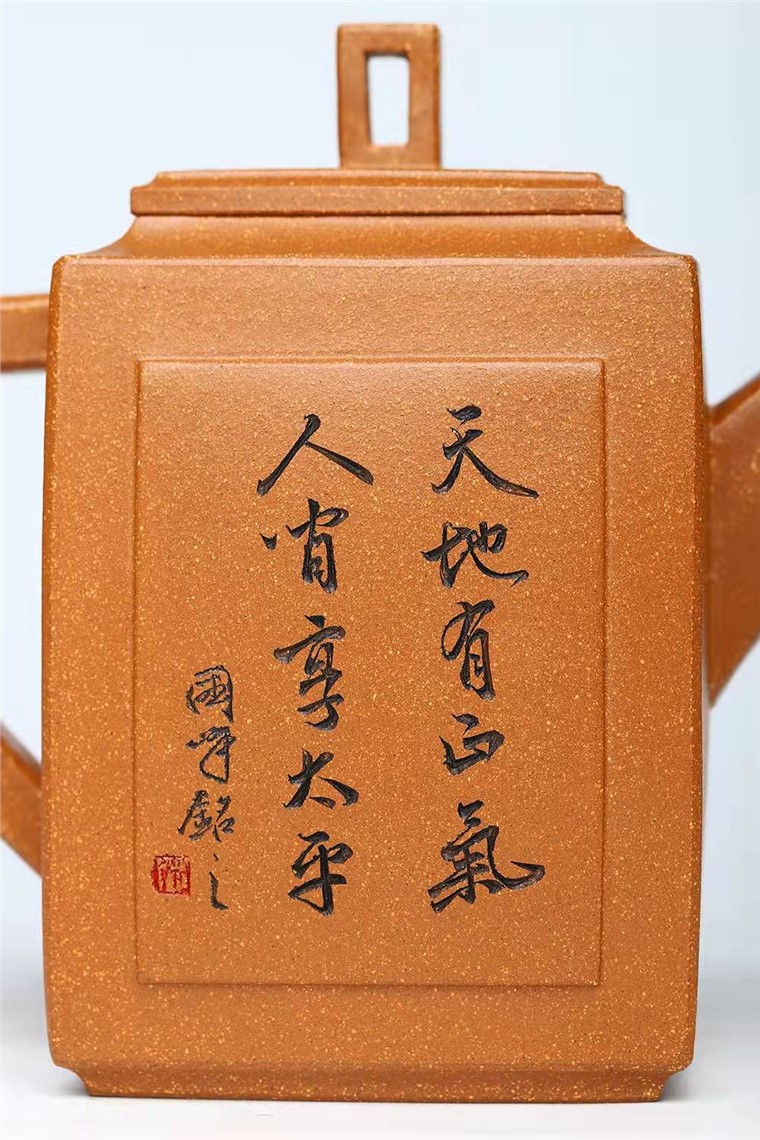 天地有正氣
人間享太平
國銘之